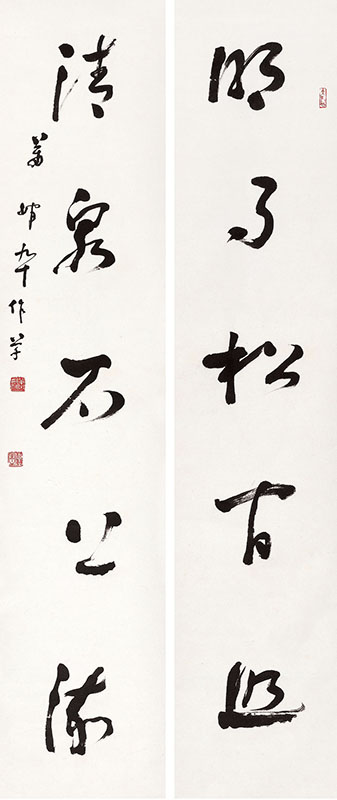 明月松間照
清泉石上流
蕭嫻九十作草